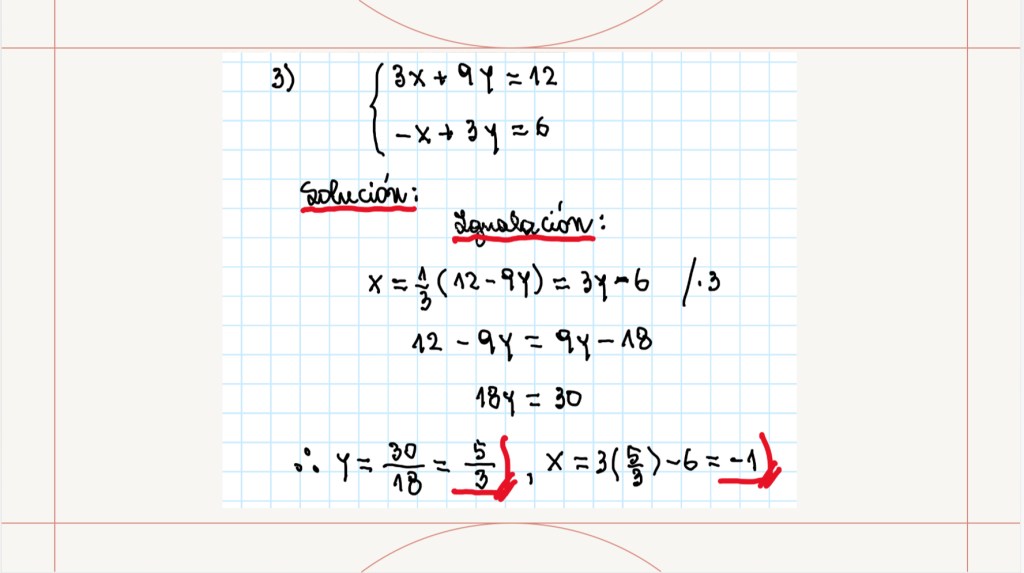 3) { 3x + 9y = 12
-x + 3y = 6
Solución:
Igualación:
x = 1/3 (12 - 9y) = 3y - 6 /·3
12 - 9y = 9y - 18
18y = 30
∴ y = 30/18 = 5/3, x = 3(5/3) - 6 = -1